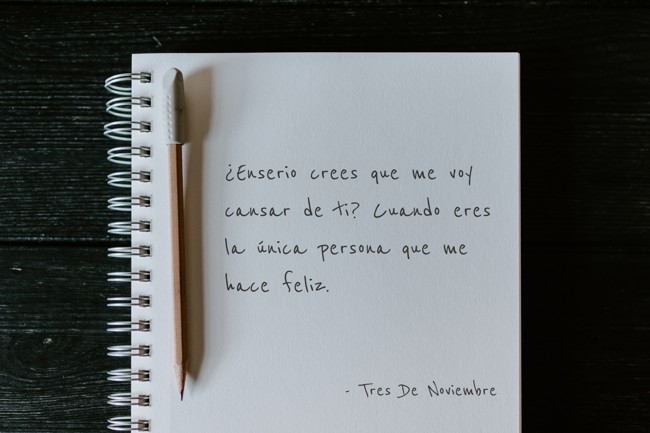 ¿Enserio crees que me voy
cansar de ti? Cuando eres
la única persona que me
hace feliz.
- Tres De Noviembre